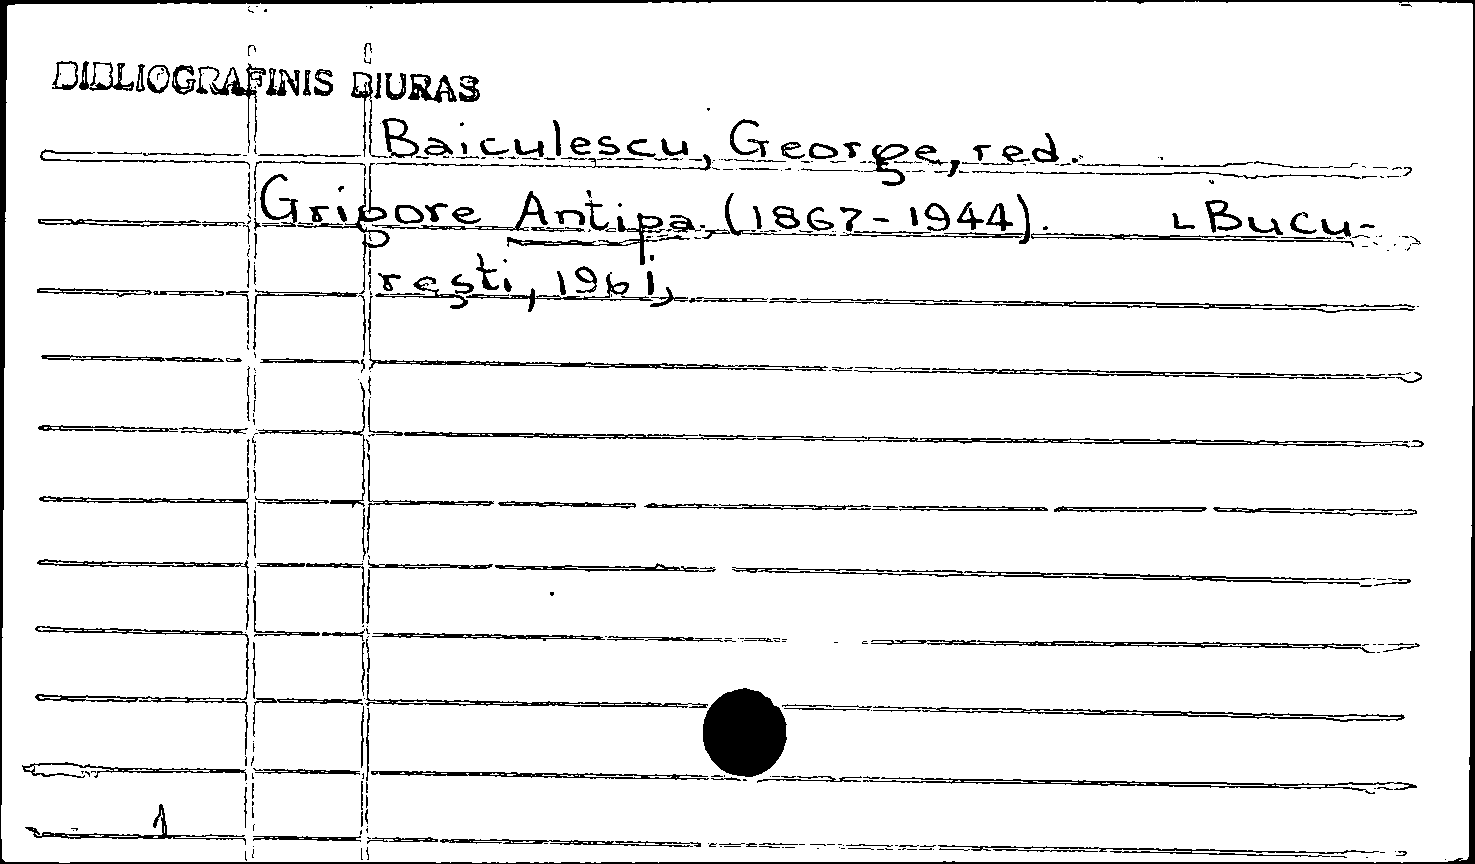 BIBLIOGRAFINIS BIURAS
Baiculescu, George, red.
Grigore Antipa. (1867-1944). Bucu-
reşti, 1961,
1